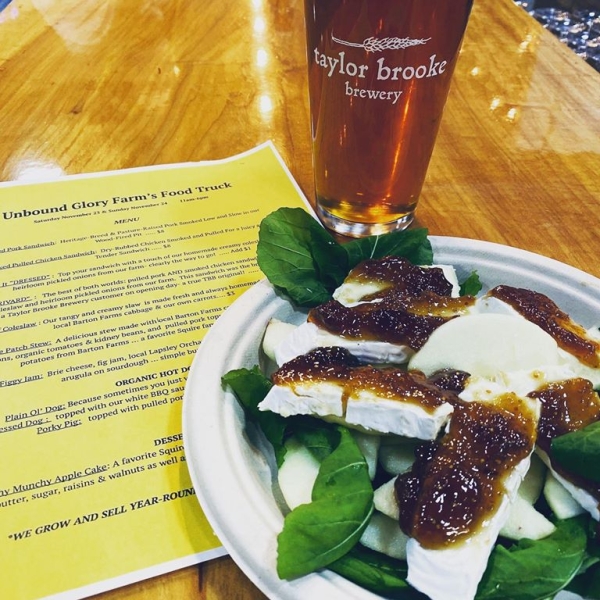 taylor brooke
brewery
Unbound Glory Farm's Food Truck
Saturday November 23 & Sunday November 24 11am-6pm
MENU
Pork Sandwich: Heritage-Breed & Pasture-Raised Pork Smoked Low and Slow in our
Wood-Fired Pit ..... $8
Pulled Chicken Sandwich: Dry-Rubbed Chicken Smoked and Pulled For a Juicy
Tender Sandwich ..... $8
It "DRESSED" : Top your sandwich with a touch of our homemade creamy
heirloom pickled onions from our farm- clearly the way to go! ..... Add $1
: The best of both worlds: pulled pork AND smoked chicken
and heirloom pickled onions from our farm. This sandwich was the
Taylor Brooke Brewery customer on opening day: a true TBB original!
Coleslaw : Our tangy and creamy slaw is made fresh and always
local Barton Farms cabbage & our own carrots
Patch Stew: A delicious stew made with local Barton
organic tomatoes & kidney beans, and pulled pork
potatoes from Barton Farms ... a favorite Squire
Figgy Jam: Brie cheese, fig jam, local Lapsley
arugula on sourdough ... simple
ORGANIC HOT
Plain Ol' Dog: Because sometimes you just
Dog : topped with our white BBQ
Porky Pig: topped with pulled
Munchy Apple Cake: A favorite
butter, sugar, raisins & walnuts as well
*WE GROW AND SELL YEAR-ROUND